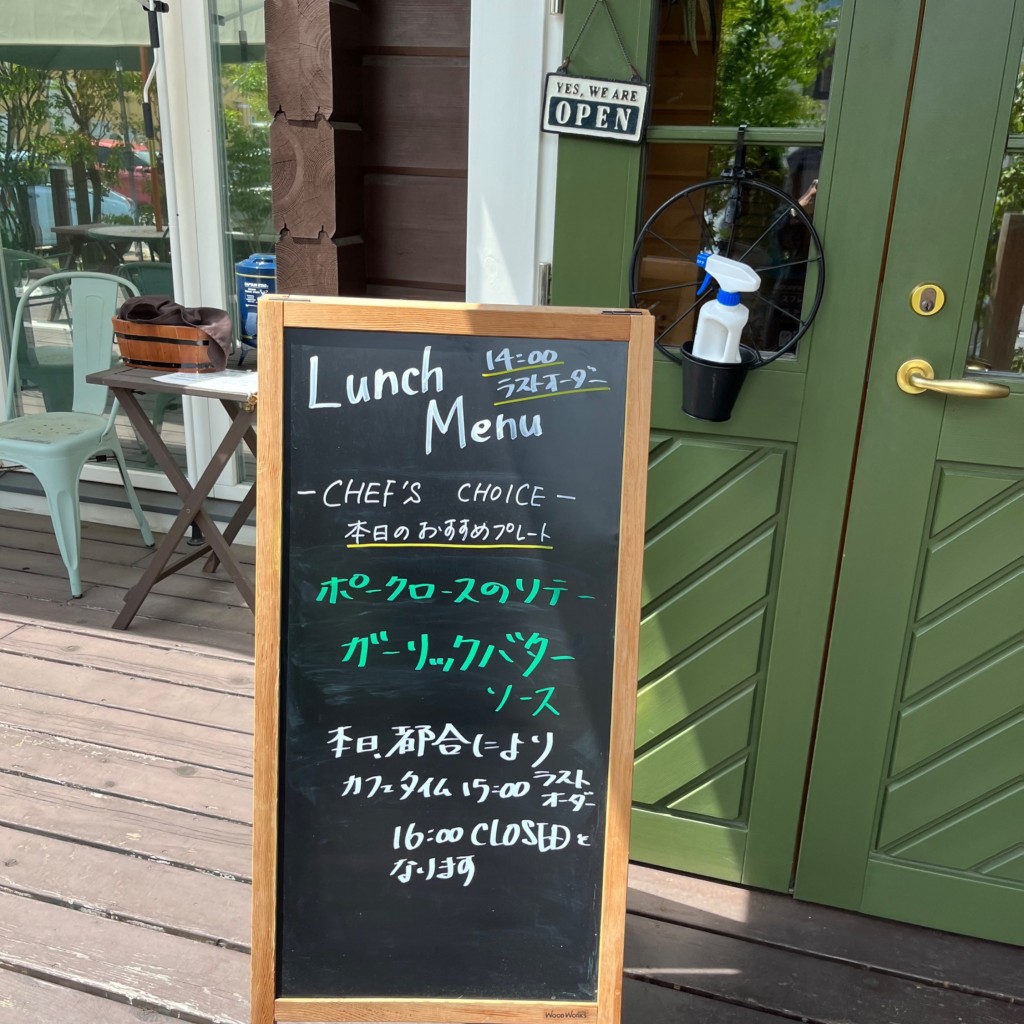 YES, WE ARE
OPEN
Lunch
Menu
14:00
ラストオーダー
- CHEF'S CHOICE -
本日のおすすめプレート
ポークロースのソテー
ガーリックバター
ソース
本日、都合により
カフェタイム 15:00 ラスト
オーダー
16:00 CLOSEDと
なります
WOOD WORKS